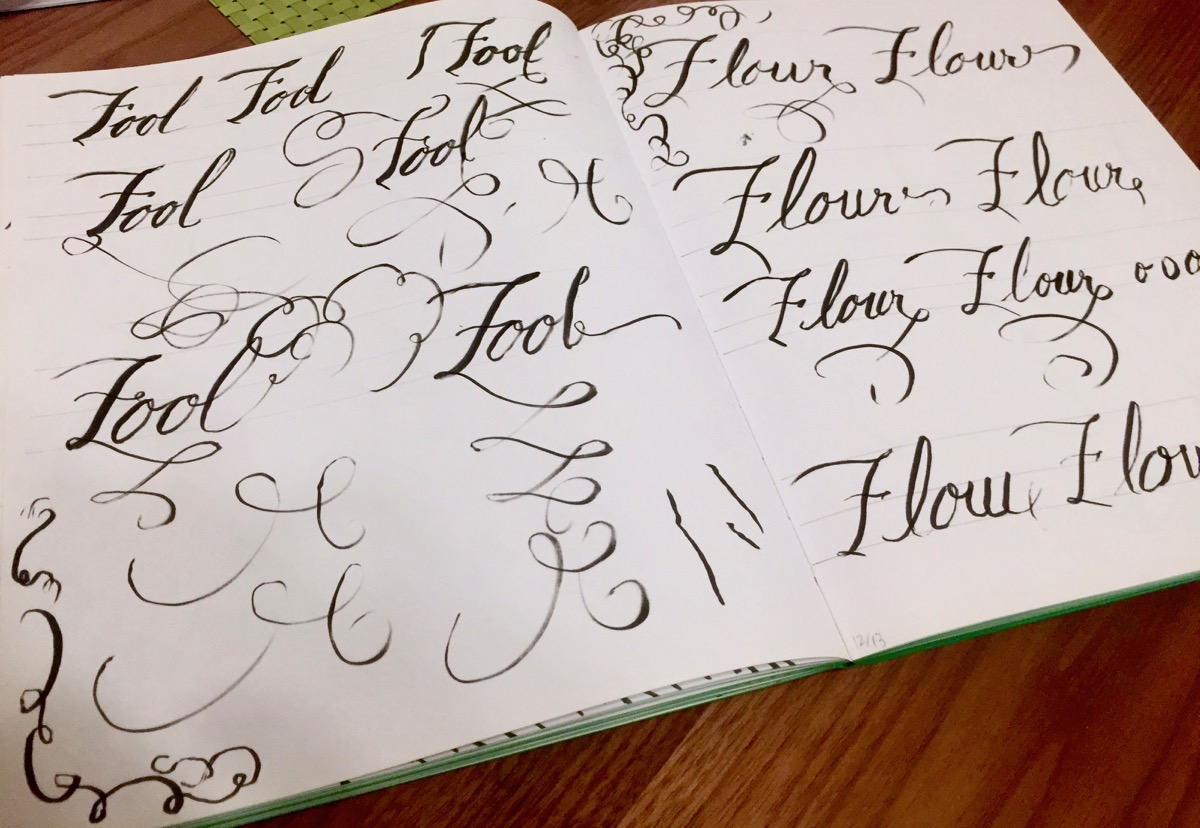 Fool Fool Fool
Fool Fool
Fool Fool
Flour Flour
Flour Flour
Flour Flour ooo
Flour Flou
12/13